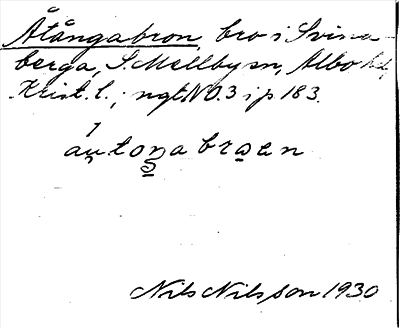 Åtångabron, bro i Svina-
berga, S. Mellby sn, Albo hd,
Krist. l.; ngt NO. 3 i p 183.
au̯toŋabroen
Nils Nilsson 1930